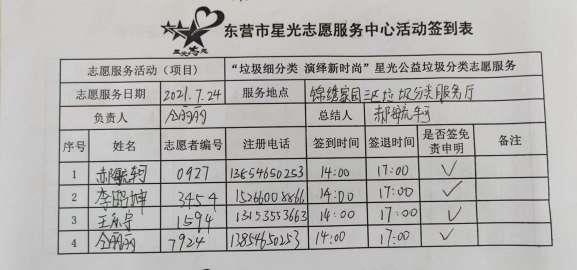 星光志愿
东营市星光志愿服务中心活动签到表
志愿服务活动（项目） “垃圾细分类 演绎新时尚”星光公益垃圾分类志愿服务
志愿服务日期 2021.7.24 服务地点 锦绣家园三区垃圾分类服务厅
负责人 仝丽丽 总结人 郝毓轲
序号 姓名 志愿者编号 注册电话 签到时间 签退时间 是否签免责申明 备注
1 郝毓轲 0927 13854650253 14:00 17:00 ✓
2 李 坤 3454 15266008866 14:00 17:00 ✓
3 王 宇 1594 13153553663 14:00 17:00 ✓
4 仝丽丽 7924 13854650253 14:00 17:00 ✓